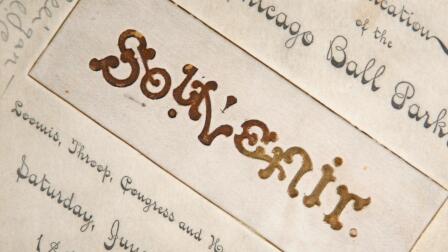 Dedication
of the
Chicago Ball Park
Souvenir.
Loomis, Throop, Congress and
Saturday, June